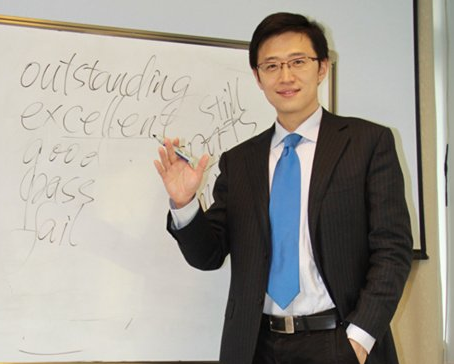 outstanding
excellent still
good
pass
fail